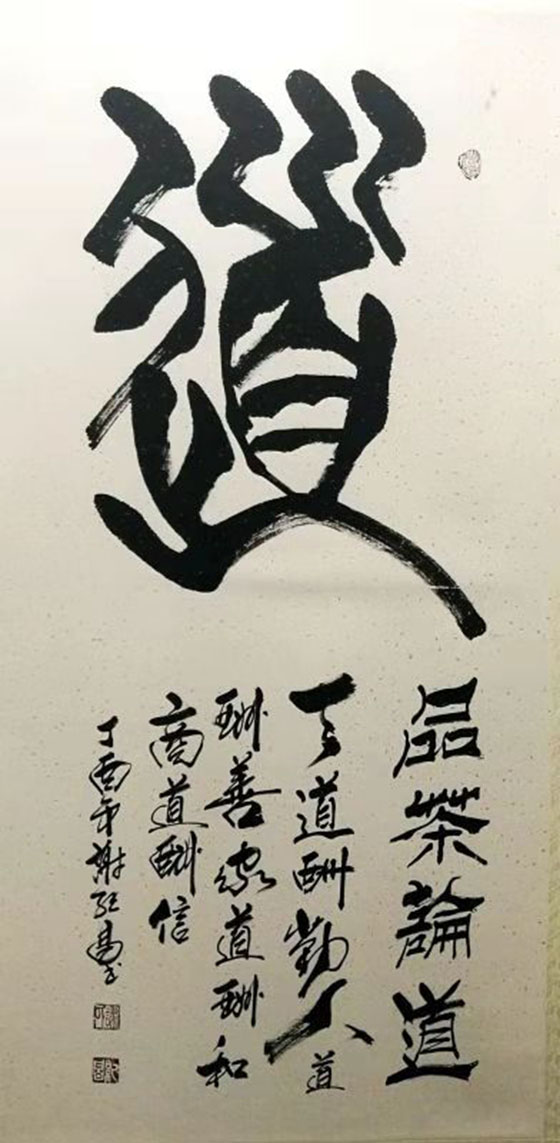 道
品茶論道
天道酬勤人道
酬善家道酬和
商道酬信
丁酉年謝紅昌书